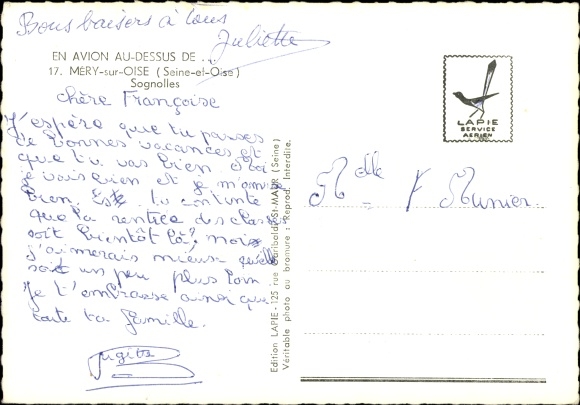 Bons baisers à tous
Juliette
EN AVION AU-DESSUS DE . . .
17. MÉRY-sur-OISE (Seine-et-Oise)
Sognolles
chère Françoise
J'espère que tu passes
de bonnes vacances et
que tu vas bien. Moi
je vais bien et je m'amuse
bien. Es tu contente
que la rentrée des classes
soit bientôt là? Moi
j'aimerais mieux qu'elle
soit un peu plus loin.
Je t'embrasse ainsi que
toute ta famille.
LAPIE
SERVICE
AERIEN
Mlle F Munier
Edition LAPIE - 125 rue Garibaldi-St-MAUR (Seine)
Véritable photo au bromure : Reprod. Interdite.